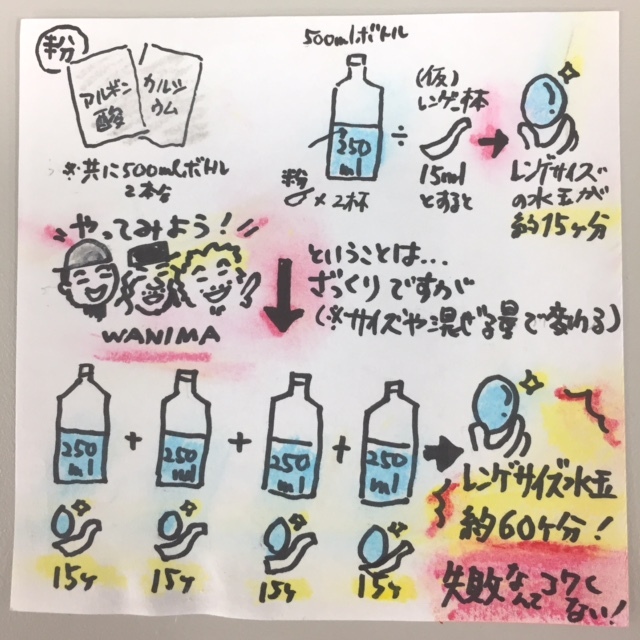 粉
アルギン酸
カルシウム
※共に500mlボトル
2本分
500mlボトル
250
ml
粉
×2杯
÷
(仮)
レンゲ一杯
15ml
とすると
レンゲサイズ
の水玉が
約15ヶ分
やってみよう!
WANIMA
ということは…
ざっくりですが
(※サイズや混ぜる量で変わる)
250
ml
+
250
ml
+
250
ml
+
250
ml
15ヶ
15ヶ
15ヶ
15ヶ
レンゲサイズ水玉
約60ヶ分!
失敗なんてコワく
ない!